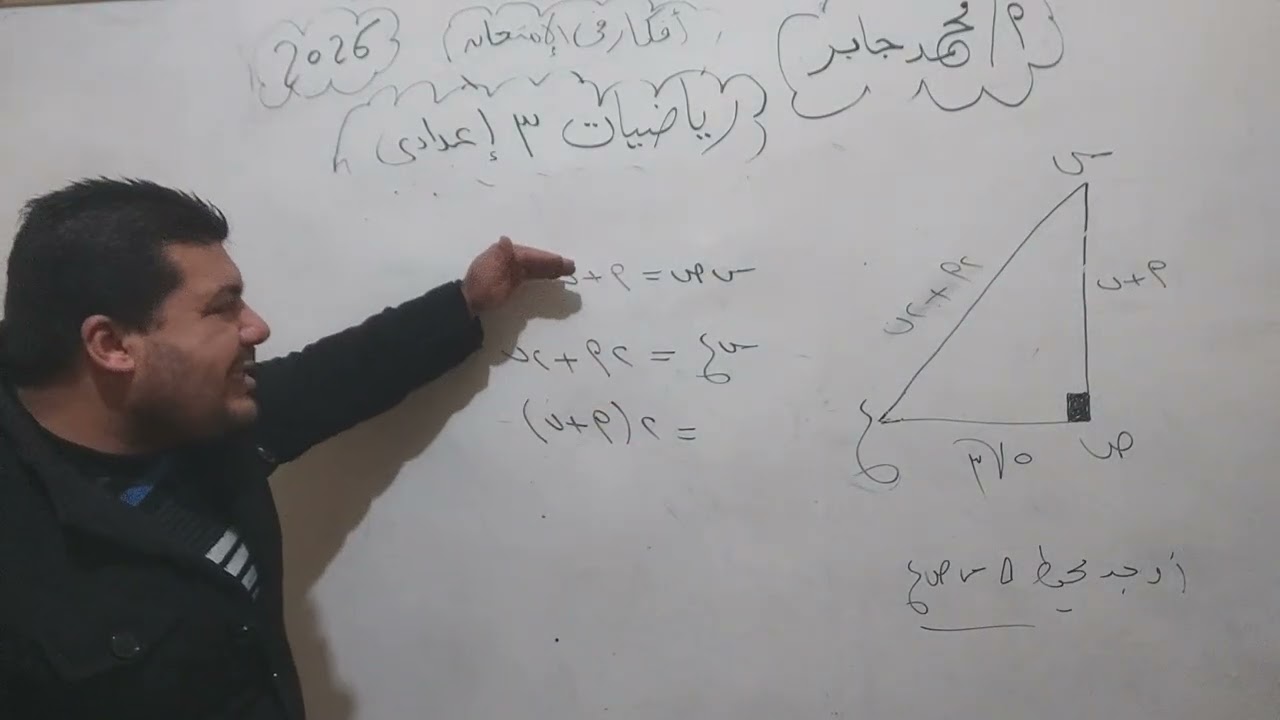 م/ محمد جابر
أفكار فى الإمتحان
2026
رياضيات ٣ إعدادى
س
م+ن
٢م+٢ن
ص
٥√٣
ع
س ص = م+ن
س ع = ٢م+٢ن
= ٢(م+ن)
أوجد محيط Δ س ص ع